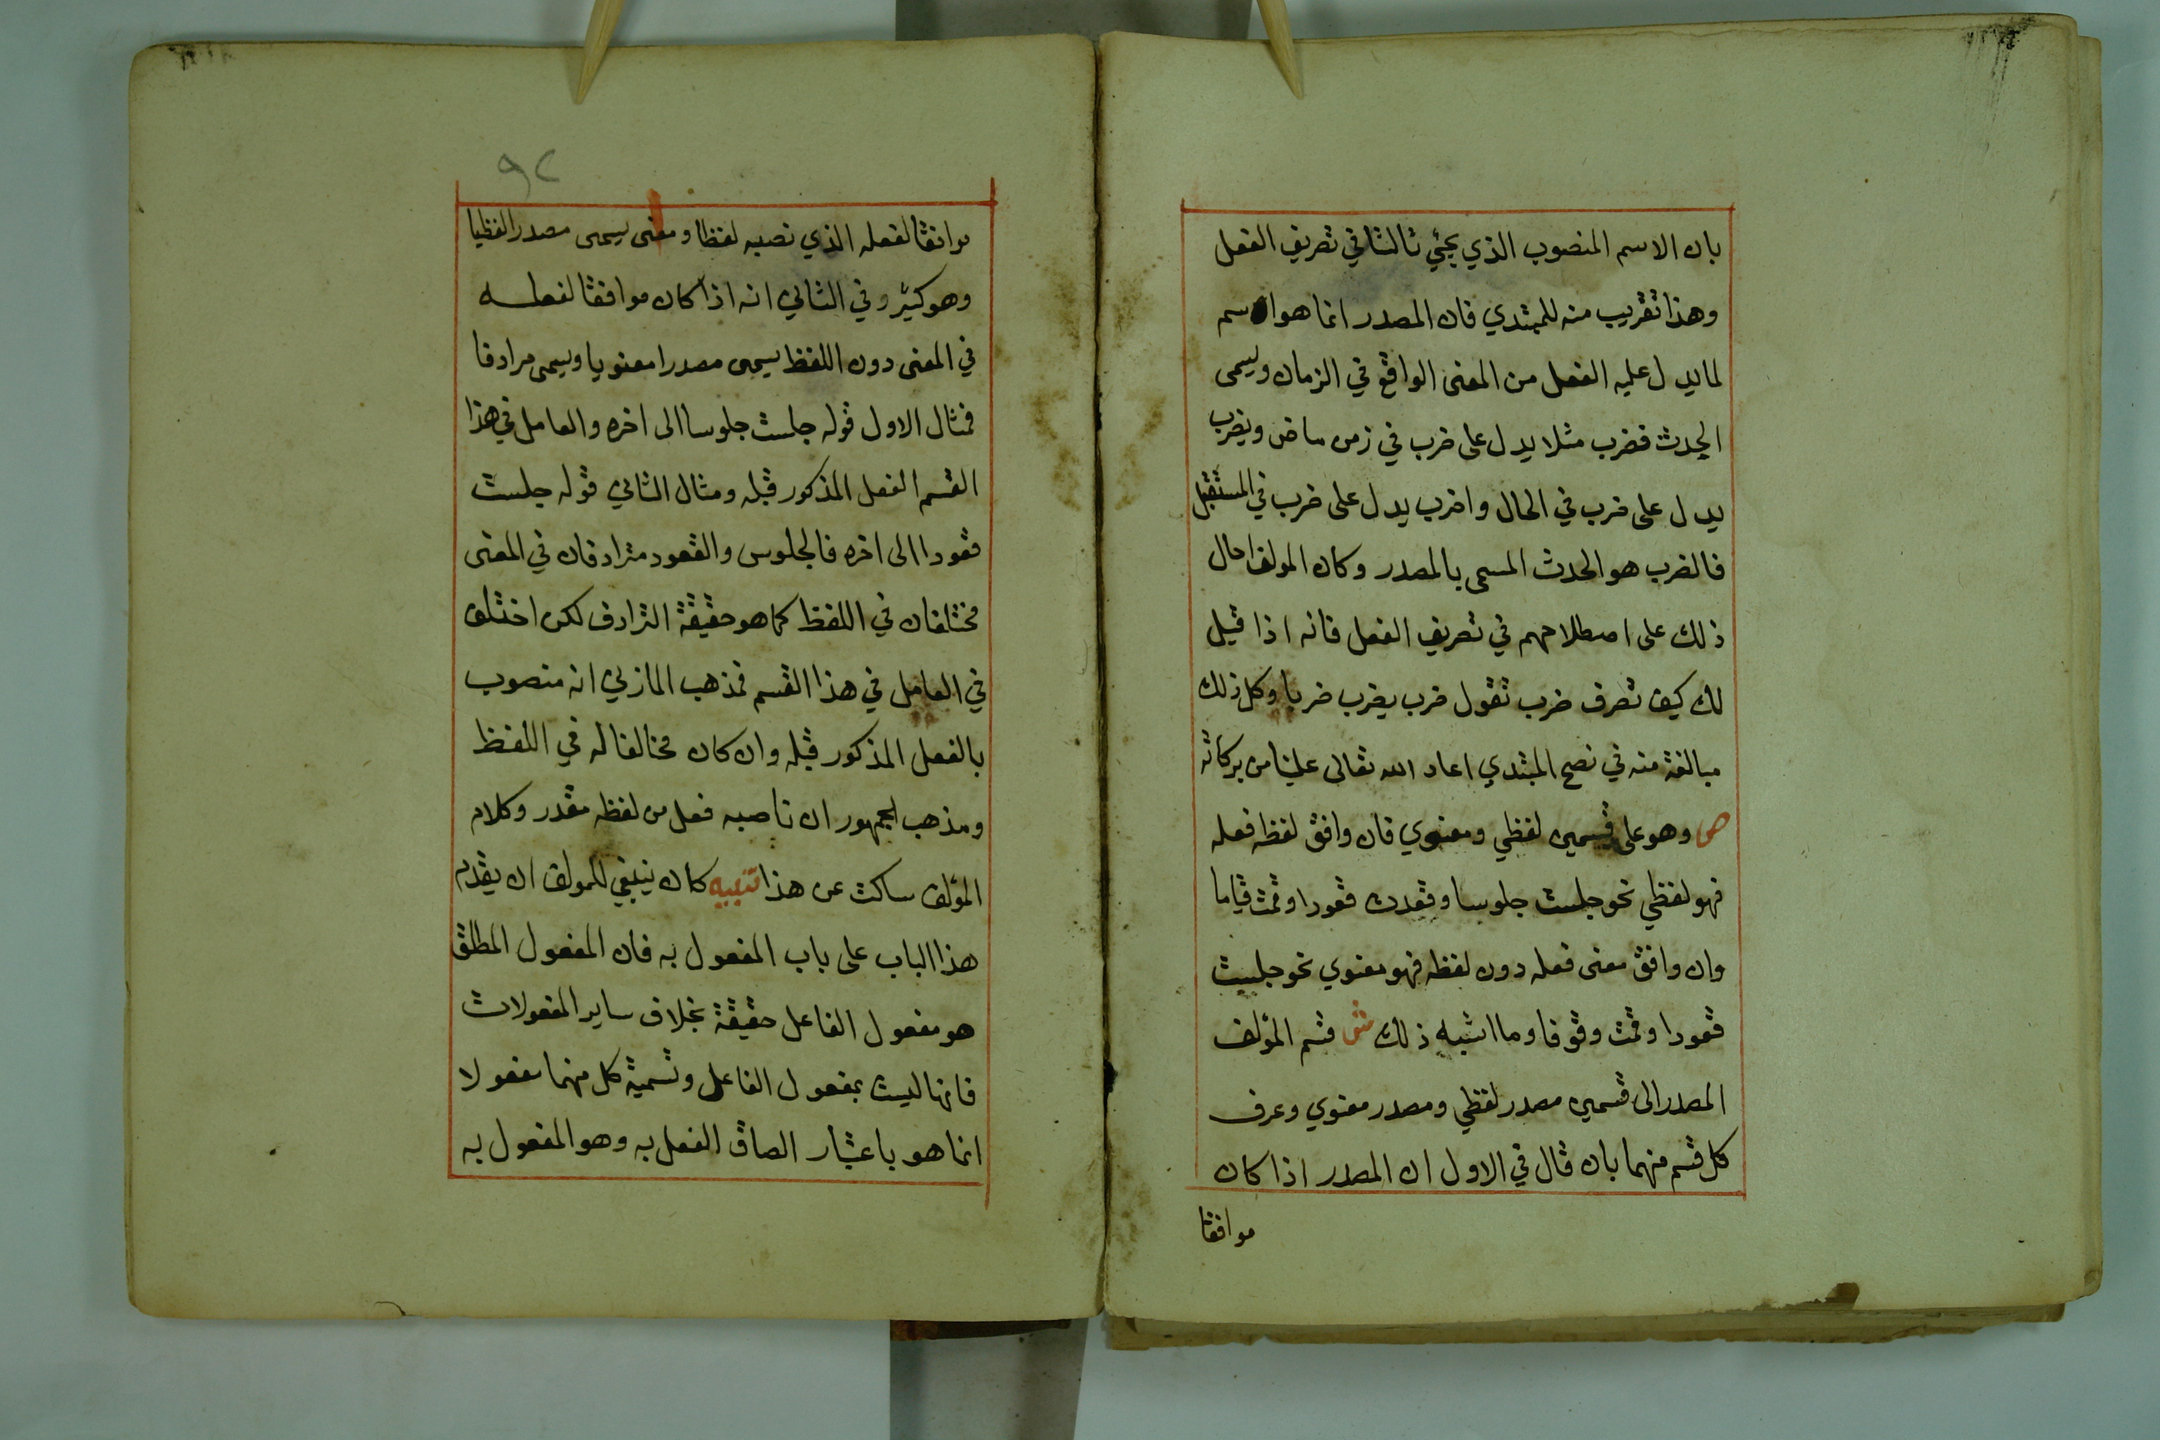 بان الاسم المنصوب الذي يجئ ثالثا في تصريف الفعل
وهذا تقريب منه للمبتدي فان المصدر انما هو اسم
لما يدل عليه الفعل من المعنى الواقع في الزمان ويسمى
الحدث فضرب مثلا يدل على ضرب في زمن ماض ويضرب
يدل على ضرب في الحال واضرب يدل على ضرب في المستقبل
فالضرب هو الحدث المسمى بالمصدر وكان المولف احال
ذلك على اصطلاحهم في تصريف الفعل فانه اذا قيل
لك كيف تصرف ضرب تقول ضرب يضرب ضربا وكل ذلك
مبالغة منه في نصح المبتدي اعاد الله تعالى علينا من بركاته
ص وهو على قسمين لفظي ومعنوي فان وافق لفظه فعله
فهو لفظي نحو جلست جلوسا وقعدت قعودا وقمت قياما
وان وافق معنى فعله دون لفظه فهو معنوي نحو جلست
قعودا وقمت وقوفا وما اشبه ذلك ش قسم المؤلف
المصدر الى قسمين مصدر لفظي ومصدر معنوي وعرف
كل قسم منهما بان قال في الاول ان المصدر اذا كان
موافقا
٩٢
موافقا لفعله الذي نصبه لفظا ومعنى يسمى مصدرا لفظيا
وهو كثير وفي الثاني انه اذا كان موافقا لفعله
في المعنى دون اللفظ يسمى مصدرا معنويا ويسمى مرادفا
فمثال الاول قوله جلست جلوسا الى اخره والعامل في هذا
القسم الفعل المذكور قبله ومثال الثاني قوله جلست
قعودا الى اخره فالجلوس والقعود مترادفان في المعنى
مختلفان في اللفظ كما هو حقيقة الترادف لكن اختلف
في العامل في هذا القسم فمذهب المازني انه منصوب
بالفعل المذكور قبله وان كان مخالفا له في اللفظ
ومذهب الجمهور ان ناصبه فعل من لفظه مقدر وكلام
المؤلف ساكت عن هذا تنبيه كان ينبغي للمولف ان يقدم
هذا الباب على باب المفعول به فان المفعول المطلق
هو مفعول الفاعل حقيقة بخلاف ساير المفعولات
فانها ليست بمفعول الفاعل وتسمية كل منهما مفعولا
انما هو باعتبار الصاق الفعل به وهو المفعول به